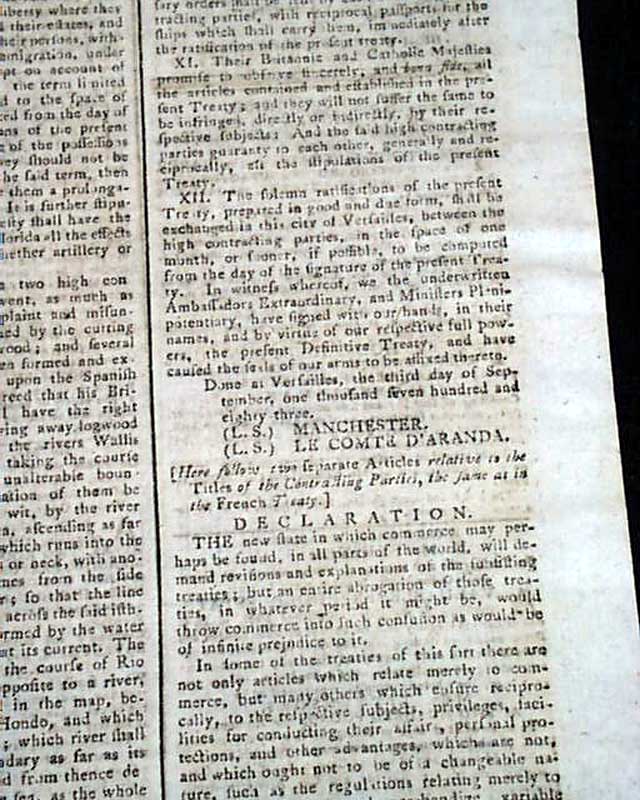 liberty where they
their estates, and
their persons, with-
emigration, under
on account of
the term limited
d to the space of
ted from the day of
ns of the present
of the possessions
they should not be
he said term, then
them a prolonga-
It is further stipu-
esty shall have the
lorida all the effects
whether artillery or
two high con
went, as much as
plaint and misun-
ned by the cutting
wood; and several
en formed and ex-
upon the Spanish
reed that his Bri-
l have the right
ying away logwood
the rivers Wallis
taking the course
unalterable boun-
ation of them be
wit, by the river
n, ascending as far
which runs into the
or neck, with ano-
mes from the side
r; so that the line
across the said isth-
ormed by the water
at its current. The
the course of Rio
opposite to a river,
d in the map, be-
Hondo, and which
; which river shall
ndary as far as its
d from thence de
sea, as the whole
sary orders shall be
tracting parties, with reciprocal passports for the
ships which shall carry them, immediately after
the ratification of the present treaty.
XI. Their Britannic and Catholic Majesties
promise to observe sincerely, and bona fide, all
the articles contained and established in the pre-
sent Treaty; and they will not suffer the same to
be infringed, directly or indirectly, by their re-
spective subjects: And the said high contracting
parties guaranty to each other, generally and re-
ciprocally, all the stipulations of the present
Treaty.
XII. The solemn ratifications of the present
Treaty, prepared in good and due form, shall be
exchanged in this city of Versailles, between the
high contracting parties, in the space of one
month, or sooner, if possible, to be computed
from the day of the signature of the present Trea-
ty. In witness whereof, we the underwritten
Ambassadors Extraordinary, and Ministers Pleni-
potentiary, have signed with our hands, in their
names, and by virtue of our respective full pow-
ers, the present Definitive Treaty, and have
caused the seals of our arms to be affixed thereto.
Done at Versailles, the third day of Sep-
tember, one thousand seven hundred and
eighty three.
(L. S.) MANCHESTER.
(L. S.) LE COMTE D'ARANDA.
[Here follow two separate Articles relative to the
Titles of the Contracting Parties, the same as in
the French Treaty.]
DECLARATION.
THE new state in which commerce may per-
haps be found, in all parts of the world, will de-
mand revisions and explanations of the subsisting
treaties; but an entire abrogation of those trea-
ties, in whatever period it might be, would
throw commerce into such confusion as would be
of infinite prejudice to it.
In some of the treaties of this sort there are
not only articles which relate merely to com-
merce, but many others which ensure recipro-
cally, to the respective subjects, privileges, faci-
lities for conducting their affairs, personal pro-
tections, and other advantages, which are not,
and which ought not to be of a changeable na-
ture, such as the regulations relating merely to
variable